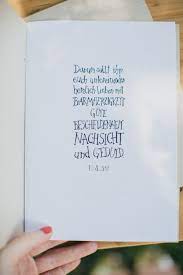 Darum sollt ihr
euch untereinander
herzlich lieben mit
BARMHERZIGKEIT
GÜTE
BESCHEIDENHEIT
NACHSICHT
und GEDULD